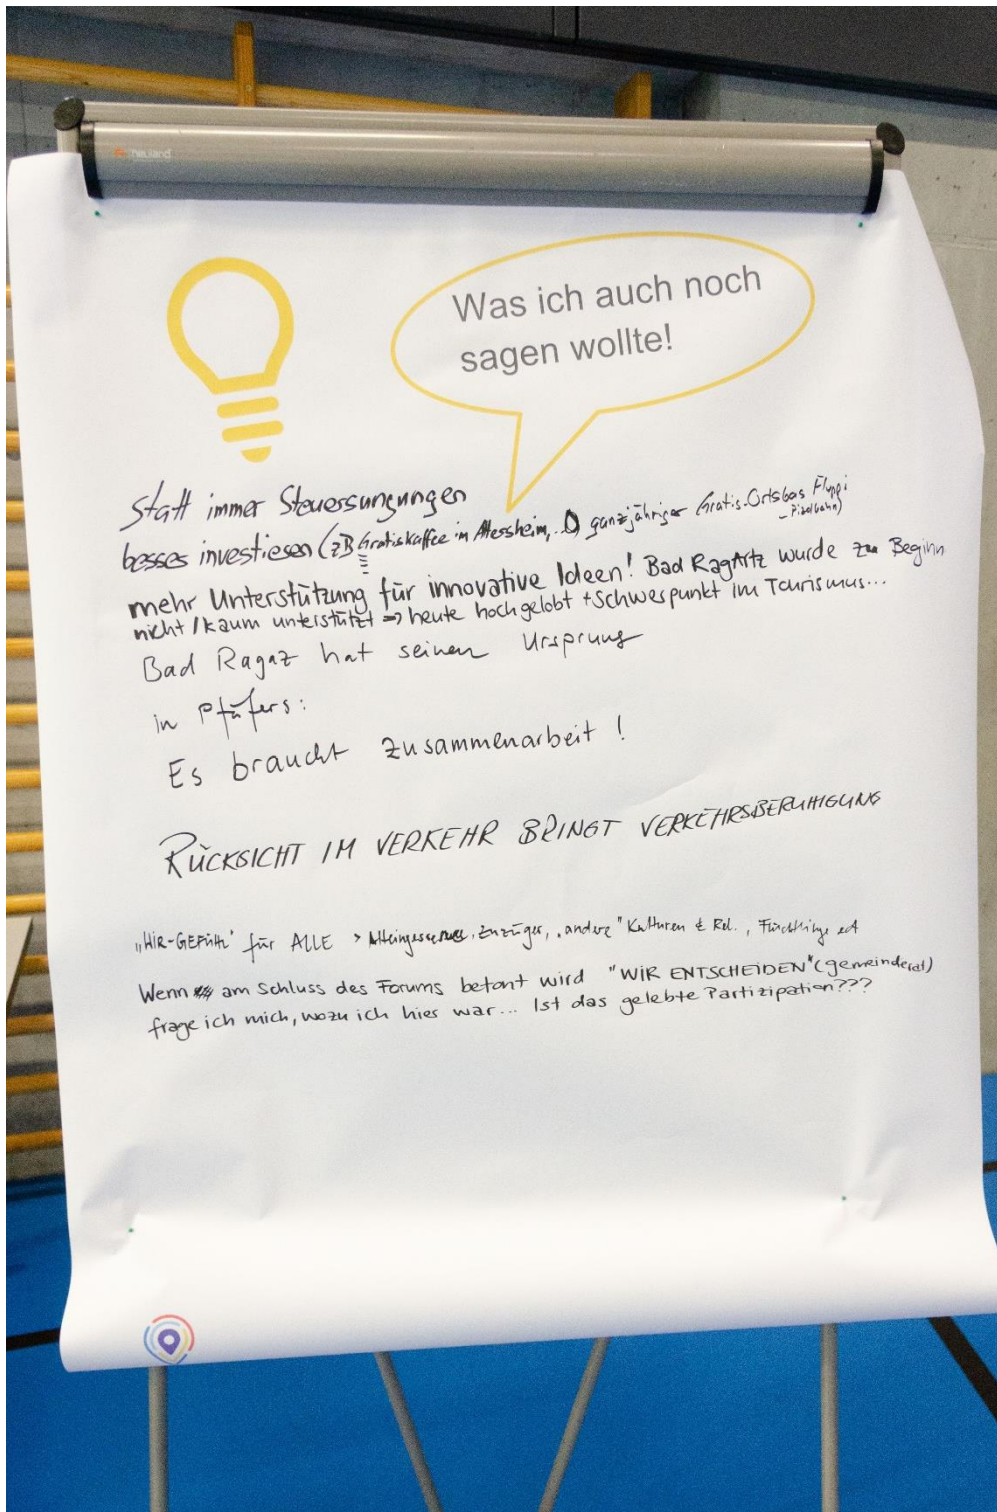 neuland
Was ich auch noch
sagen wollte!
Statt immer Steuersungungen
besser investieren (zB Gratiskaffee im Altersheim,...) ganzjähriger Gratis-Ortsbus Fluppi
- Pizolbahn)
mehr Unterstützung für innovative Ideen! Bad RagArtz wurde zu Beginn
nicht / kaum unterstützt => heute hochgelobt + Schwerpunkt im Tourismus...
Bad Ragaz hat seinen Ursprung
in Pfäfers:
Es braucht zusammenarbeit!
RÜCKSICHT IM VERKEHR BRINGT VERKEHRSBERUHIGUNG
"WIR-GEFÜHL" für ALLE > Alteingesessene, Zuzüger, "andere" Kulturen & Rel., Flüchtlinge ect
Wenn am Schluss des Forums betont wird "WIR ENTSCHEIDEN" (gemeinderat)
frage ich mich, wozu ich hier war... Ist das gelebte Partizipation???